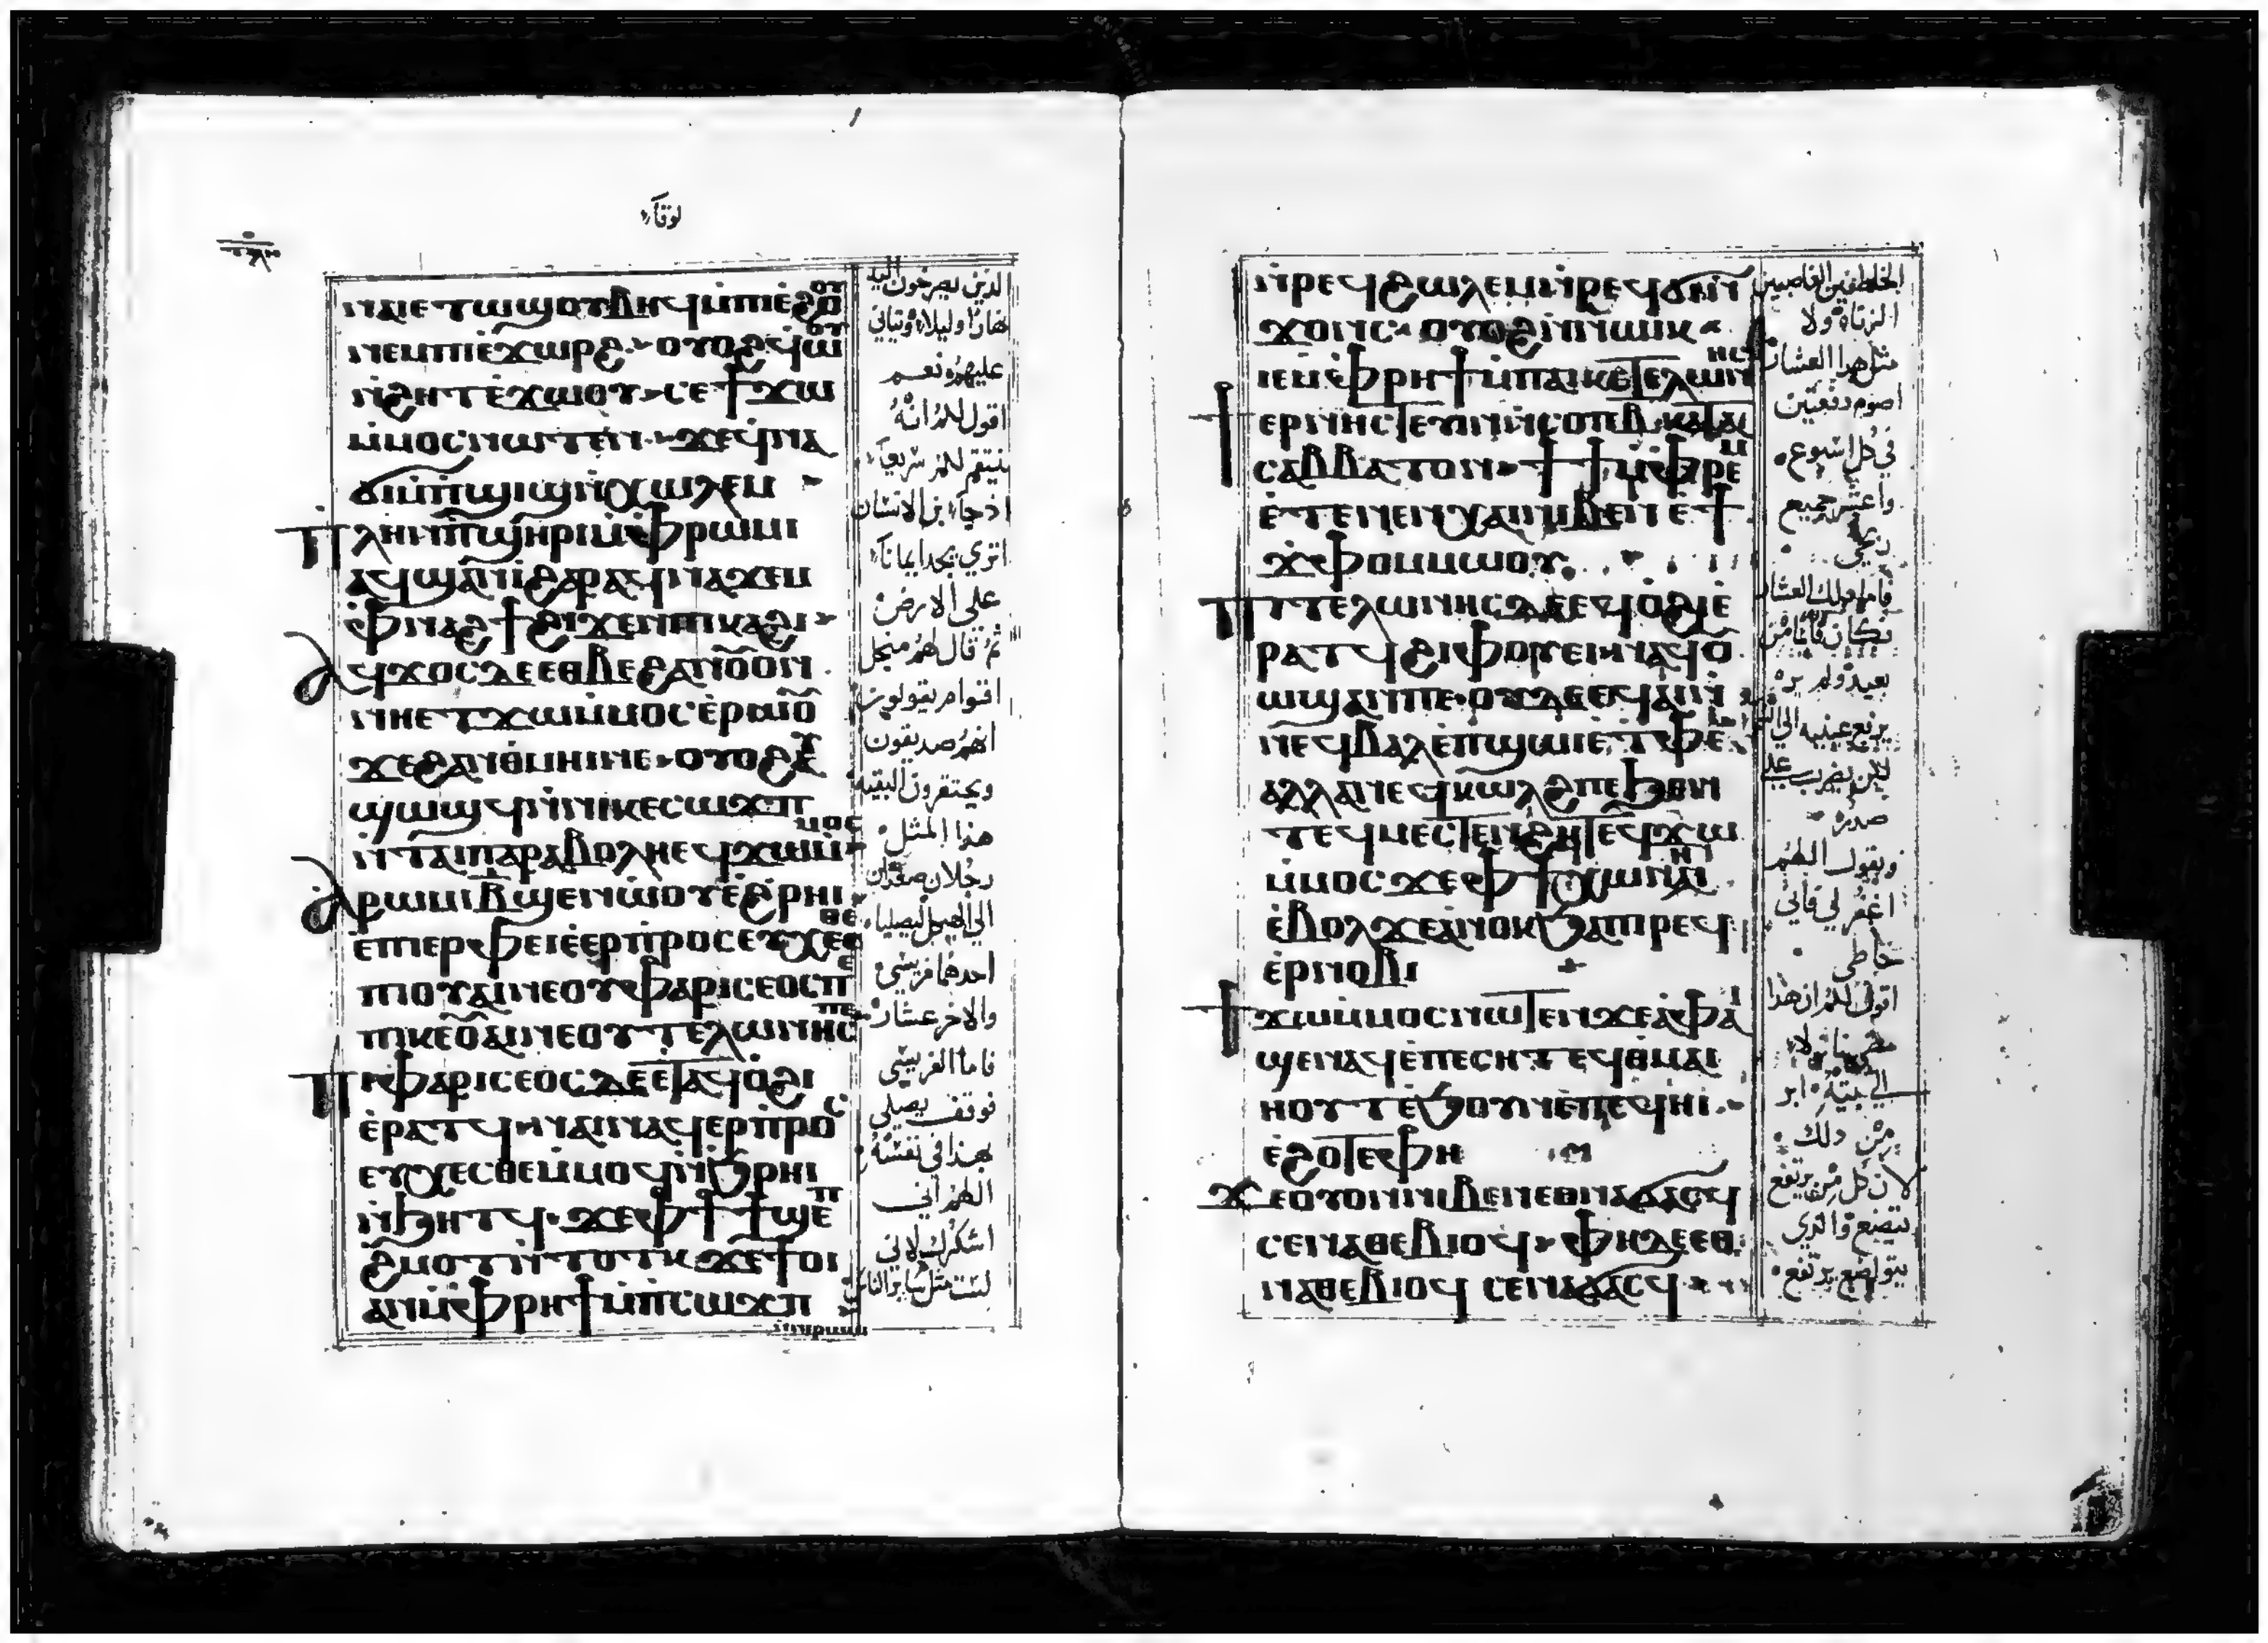 لوقا
ⲛⲁⲓⲉⲧⲱϣⲟⲩⲃⲏϥⲙ̀ⲡⲓⲉ̀ϩⲟⲟⲩ
ⲛⲉⲙⲡⲓⲉ̀ϫⲱⲣϩ ⲟⲩⲟϩϥⲱ̀ⲟⲩ
ⲛ̀ϩⲏⲧⲉ̀ϫⲱⲟⲩ ⲥⲉϯϫⲱ
ⲙ̀ⲙⲟⲥⲛⲱⲧⲉⲛ ϫⲉϥⲛⲁ
ϭⲓⲙ̀ⲡϣⲓϣⲛ̀ⲭⲱⲗⲉⲙ
ⲡⲗⲏⲛⲡ̀ϣⲏⲣⲓⲙ̀ⲫⲣⲱⲙⲓ
ⲁϥϣⲁⲛⲓ̀ϩⲁⲣⲁϥⲛⲁϫⲉⲙ
ⲫⲛⲁϩϯϩⲓϫⲉⲛⲡⲓⲕⲁϩⲓ
ⲁϥϫⲟⲥⲇⲉⲉⲑⲃⲉϩⲁⲛⲟⲩⲟⲛ
ⲛⲏⲉⲧϫⲱⲙ̀ⲙⲟⲥⲉ̀ⲣⲱⲟⲩ
ϫⲉϩⲁⲛⲑ̀ⲙⲏⲓⲛⲉ ⲟⲩⲟϩⲉⲩ
ϣⲱϣϥⲛ̀ⲛⲓⲕⲉⲥⲱϫⲡ
ⲛ̀ⲧⲁⲓⲡⲁⲣⲁⲃⲟⲗⲏⲉϥϫⲱⲙ̀ⲙⲟⲥ
ⲁⲣⲱⲙⲓⲃ̅ϣⲉⲛⲱⲟⲩⲉ̀ϩⲣⲏⲓ
ⲉ̀ⲡⲓⲉⲣⲫⲉⲓⲉ̀ⲉⲣⲡⲣⲟⲥⲉⲩⲭⲉⲥⲑⲉ
ⲡⲓⲟⲩⲁⲓⲛⲉⲟⲩⲫⲁⲣⲓⲥⲉⲟⲥⲡⲉ
ⲡⲓⲕⲉⲟⲩⲁⲓⲛⲉⲟⲩⲧⲉⲗⲱⲛⲏⲥⲡⲉ
ⲡⲓⲫⲁⲣⲓⲥⲉⲟⲥⲇⲉⲉⲧⲁϥⲟ̀ϩⲓ
ⲉ̀ⲣⲁⲧϥⲛⲁⲓⲛⲁϥⲉⲣⲡⲣⲟⲥ
ⲉⲩⲭⲉⲥⲑⲉⲙ̀ⲙⲟϥⲛ̀ϧⲣⲏⲓ
ⲛ̀ϧⲏⲧϥ ϫⲉⲫϯϯϣⲉⲡ
ϩ̀ⲙⲟⲧⲛ̀ⲧⲟⲧⲕϫⲉϯⲟⲓ
ⲁⲛⲙ̀ⲫⲣⲏϯⲙ̀ⲡⲥⲱϫⲡ
ⲛ̀ⲛⲓⲣⲱⲙⲓ
الذين يصرخون اليه
نهارا وليلا ويتاني
عليهم نعم
اقول لكم انه
ينتقم لهم سريعا
اذ جاء ابن الانسان
اتري يجد ايمانا
علي الارض
ثم قال لهم من اجل
اقوام يقولون
انهم صديقون
ويحتقرون البقيه
هذا المثل
رجلان صعدان
الي الهيكل ليصليا
احدهما فريسي
والاخر عشار
فاما الفريسي
فوقف يصلي
بهذا في نفسه
اللهم اني
اشكرك لاني
لست مثل سايرالناس
ⲛ̀ⲣⲉϥϩⲱⲗⲉⲙⲛ̀ⲣⲉϥϭⲓⲛ̀
ϫⲟⲛⲥ ⲟⲩⲟϩⲛ̀ⲛⲱⲓⲕ
ⲓⲉⲙ̀ⲫⲣⲏϯⲙ̀ⲡⲁⲓⲕⲉⲧⲉⲗⲱⲛⲏⲥ
ϯⲉⲣⲛⲏⲥⲧⲉⲩⲓⲛⲛ̀ⲥⲟⲡⲃ̅ⲕⲁⲧⲁ
ⲥⲁⲃⲃⲁⲧⲟⲛ ϯϯⲙ̀ⲫⲣⲉⲙⲏⲧ
ⲉ̀ⲧⲉⲛⲉⲛⲭⲁⲓⲛⲓⲃⲉⲛⲉϯ
ϫ̀ⲫⲟⲙⲙⲱⲟⲩ
ⲡⲓⲧⲉⲗⲱⲛⲏⲥⲇⲉⲉϥⲟ̀ϩⲓⲉ̀
ⲣⲁⲧϥϩⲓⲫⲟⲩⲉⲓⲛⲁϥⲟⲩ
ⲱϣⲁⲛⲡⲉ ⲟⲩⲇⲉⲉϥⲁⲓⲛ̀
ⲛⲉϥⲃⲁⲗⲉ̀ⲡϣⲱⲓⲉ̀ⲧⲫⲉ
ⲁⲗⲗⲁⲛⲉϥⲕⲱⲗϩⲡⲉϧⲉⲛ
ⲧⲉϥⲙⲉⲥⲧⲉⲛϩⲏⲧⲉϥϫⲱ
ⲙ̀ⲙⲟⲥϫⲉⲫϯⲭⲱⲛⲏⲓ
ⲉ̀ⲃⲟⲗϫⲉⲁⲛⲟⲕϧⲁⲡⲓⲣⲉϥ
ⲉⲣⲛⲟⲃⲓ
ϯϫⲱⲙ̀ⲙⲟⲥⲛⲱⲧⲉⲛϫⲉⲁ̀ⲫⲁⲓ
ϣⲉⲛⲁϥⲉ̀ⲡⲉⲥⲏⲧⲉϥⲑⲙⲁⲓ
ⲏⲟⲩⲧⲉ̀ϧⲟⲩⲛⲉ̀ⲡⲉϥⲏⲓ
ⲉ̀ϩⲟⲧⲉⲫⲏ
ϫⲉⲟⲩⲟⲛⲛⲓⲃⲉⲛⲉⲑⲛⲁϭⲁⲥϥ
ⲥⲉⲛⲁⲑⲉⲃⲓⲟϥ ⲫⲏⲇⲉⲉⲑ
ⲛⲁⲑⲉⲃⲓⲟϥ ⲥⲉⲛⲁϭⲁⲥϥ
الخاطفين الغاصبين
الزناه ولا
مثل هدا العشار
اصوم دفعتين
في كل اسبوع
واعشر جميع
فاما دلك العشار
فكان قايما من
بعيد ولم يره
يرفع عينيه الي
لكن يضرب علي
صدره
ويقول اللهم
اغفر لي فاني
خاطي
اقول لكم ان هدا
الي بيته ابر
من دلك
لان كل من يرتفع
يتضع والدي
يتواضع يرتفع